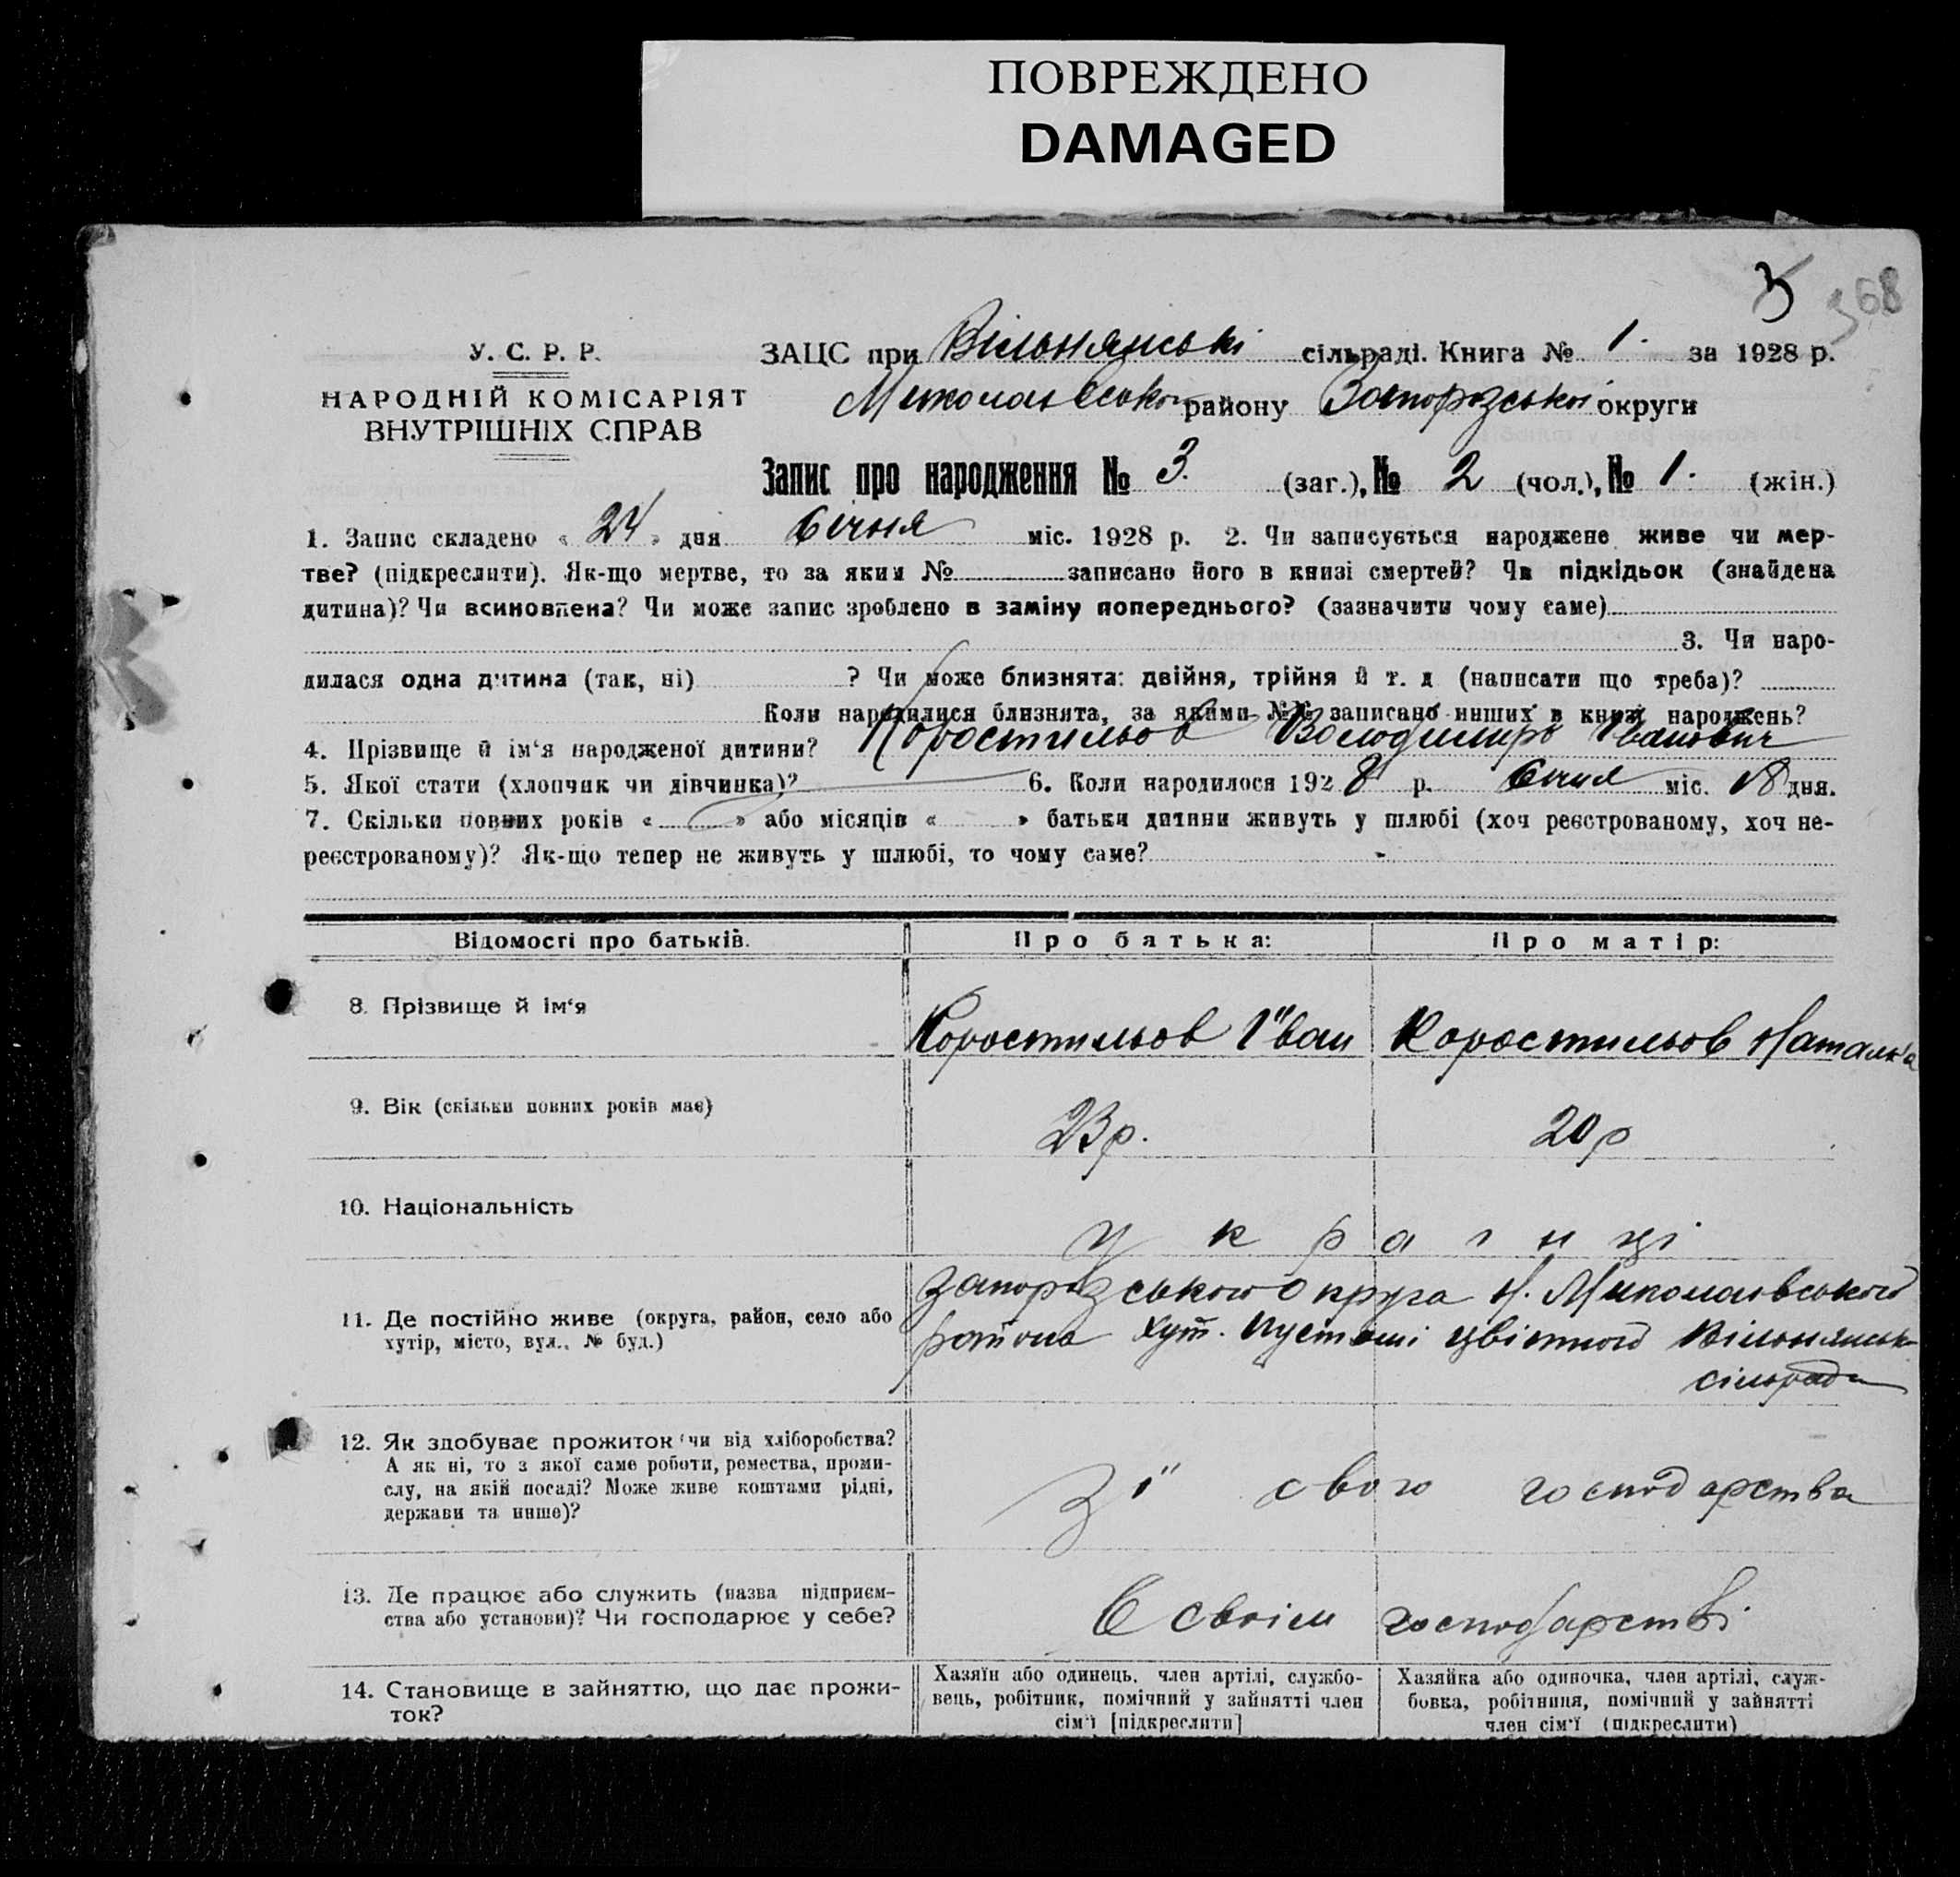 ПОВРЕЖДЕНО
DAMAGED
3 368
У. С. Р. Р.
НАРОДНІЙ КОМІСАРІЯТ
ВНУТРІШНІХ СПРАВ
ЗАЦС при Вільнянські сільраді. Книга № 1. за 1928 р.
району Запорізської округи
Запис про народження № 3. (заг.), № 2 (чол.), № 1. (жін.)
1. Запис складено « 24 » дня Січня міс. 1928 р. 2. Чи записується народжене живе чи мер-
тве? (підкреслити). Як-що мертве, то за яким № записано його в книзі смертей? Чи підкідьок (знайдена
дитина)? Чи всиновлена? Чи може запис зроблено в заміну попереднього? (зазначити чому саме)
3. Чи наро-
дилася одна дитина (так, ні) ? Чи може близнята: двійня, трійня й т. д (написати що треба)?
Коли народилися близнята, за якими №№ записано инших в книзі народжень?
4. Прізвище й ім‘я народженої дитини? Коростильов Володимир Іванович
5. Якої стати (хлопчик чи дівчинка)? 6. Коли народилося 1928 р. Січня міс. 18 дня.
7. Скільки повних років « » або місяців « » батьки дитини живуть у шлюбі (хоч реєстрованому, хоч не-
реєстрованому)? Як-що тепер не живуть у шлюбі, то чому саме?
Відомості про батьків. Про батька: Про матір:
8. Прізвище й ім‘я Коростильов Іван Коростильов Наталка
9. Вік (скільки повних років має) 23 р. 20 р
10. Національність україн ці
Запорізського округа Н. Миколаївського
11. Де постійно живе (округа, район, село або
хутір, місто, вул., № буд.) района хут. цвітного Вільнянськ
сільради
12. Як здобуває прожиток чи від хліборобства?
А як ні, то з якої саме роботи, ремества, проми-
слу, на якій посаді? Може живе коштами рідні, зі свого господарства
держави та инше)?
13. Де працює або служить (назва підприєм-
ства або установи)? Чи господарює у себе? В своїм господарстві
14. Становище в зайняттю, що дає прожи-
ток?
Хазяїн або одинець, член артілі, службо-
вець, робітник, помічний у зайнятті член
сім‘ї [підкреслити]
Хазяйка або одиночка, член артілі, служ-
бовка, робітниця, помічний у зайнятті
член сім‘ї (підкреслити)